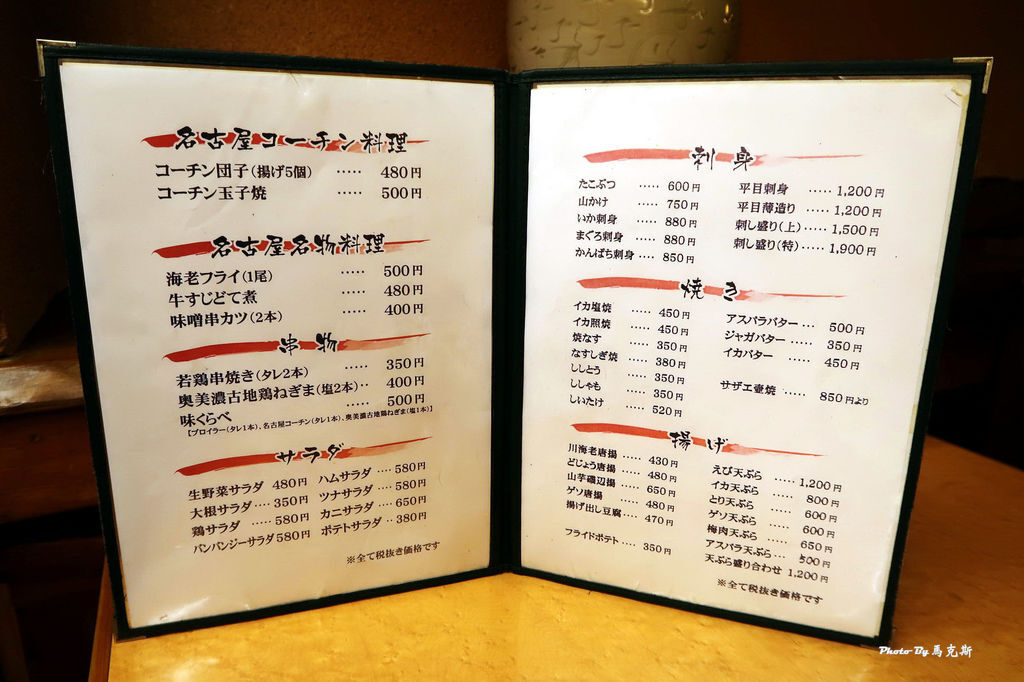 名古屋コーチン料理
コーチン団子(揚げ5個) ····· 480円
コーチン玉子焼 ····· 500円
名古屋名物料理
海老フライ(1尾) ····· 500円
牛すじどて煮 ····· 480円
味噌串カツ(2本) ····· 400円
串物
若鶏串焼き(タレ2本) 350円
奥美濃古地鶏ねぎま(塩2本)·· 400円
味くらべ ····· 500円
【ブロイラー(タレ1本)、名古屋コーチン(タレ1本)、奥美濃古地鶏ねぎま(塩1本)】
サラダ
生野菜サラダ 480円
大根サラダ ···· 350円
鶏サラダ ····· 580円
バンバンジーサラダ 580円
ハムサラダ ···· 580円
ツナサラダ ···· 580円
カニサラダ ···· 650円
ポテトサラダ ·· 380円
※全て税抜き価格です
刺身
たこぶつ ····· 600円
山かけ ····· 750円
いか刺身 ····· 880円
まぐろ刺身 ····· 880円
かんぱち刺身 ···· 850円
平目刺身 ····· 1,200円
平目薄造り ····· 1,200円
刺し盛り(上) ····· 1,500円
刺し盛り(特) ···· 1,900円
焼き
イカ塩焼 ····· 450円
イカ照焼 ····· 450円
焼なす ····· 350円
なすしぎ焼 ····· 380円
ししとう ····· 350円
ししゃも ····· 350円
しいたけ ····· 520円
アスパラバター ··· 500円
ジャガバター ···· 350円
イカバター ···· 450円
サザエ壺焼 ····· 850円より
揚げ
川海老唐揚 ···· 430円
どじょう唐揚 ···· 480円
山芋磯辺揚 ···· 650円
ゲソ唐揚 ····· 480円
揚げ出し豆腐 ···· 470円
フライドポテト ···· 350円
えび天ぷら ····· 1,200円
イカ天ぷら ····· 800円
とり天ぷら ····· 600円
ゲソ天ぷら ····· 600円
梅肉天ぷら ····· 650円
アスパラ天ぷら ··· 500円
天ぷら盛り合わせ 1,200円
※全て税抜き価格です
Photo By 馬克斯